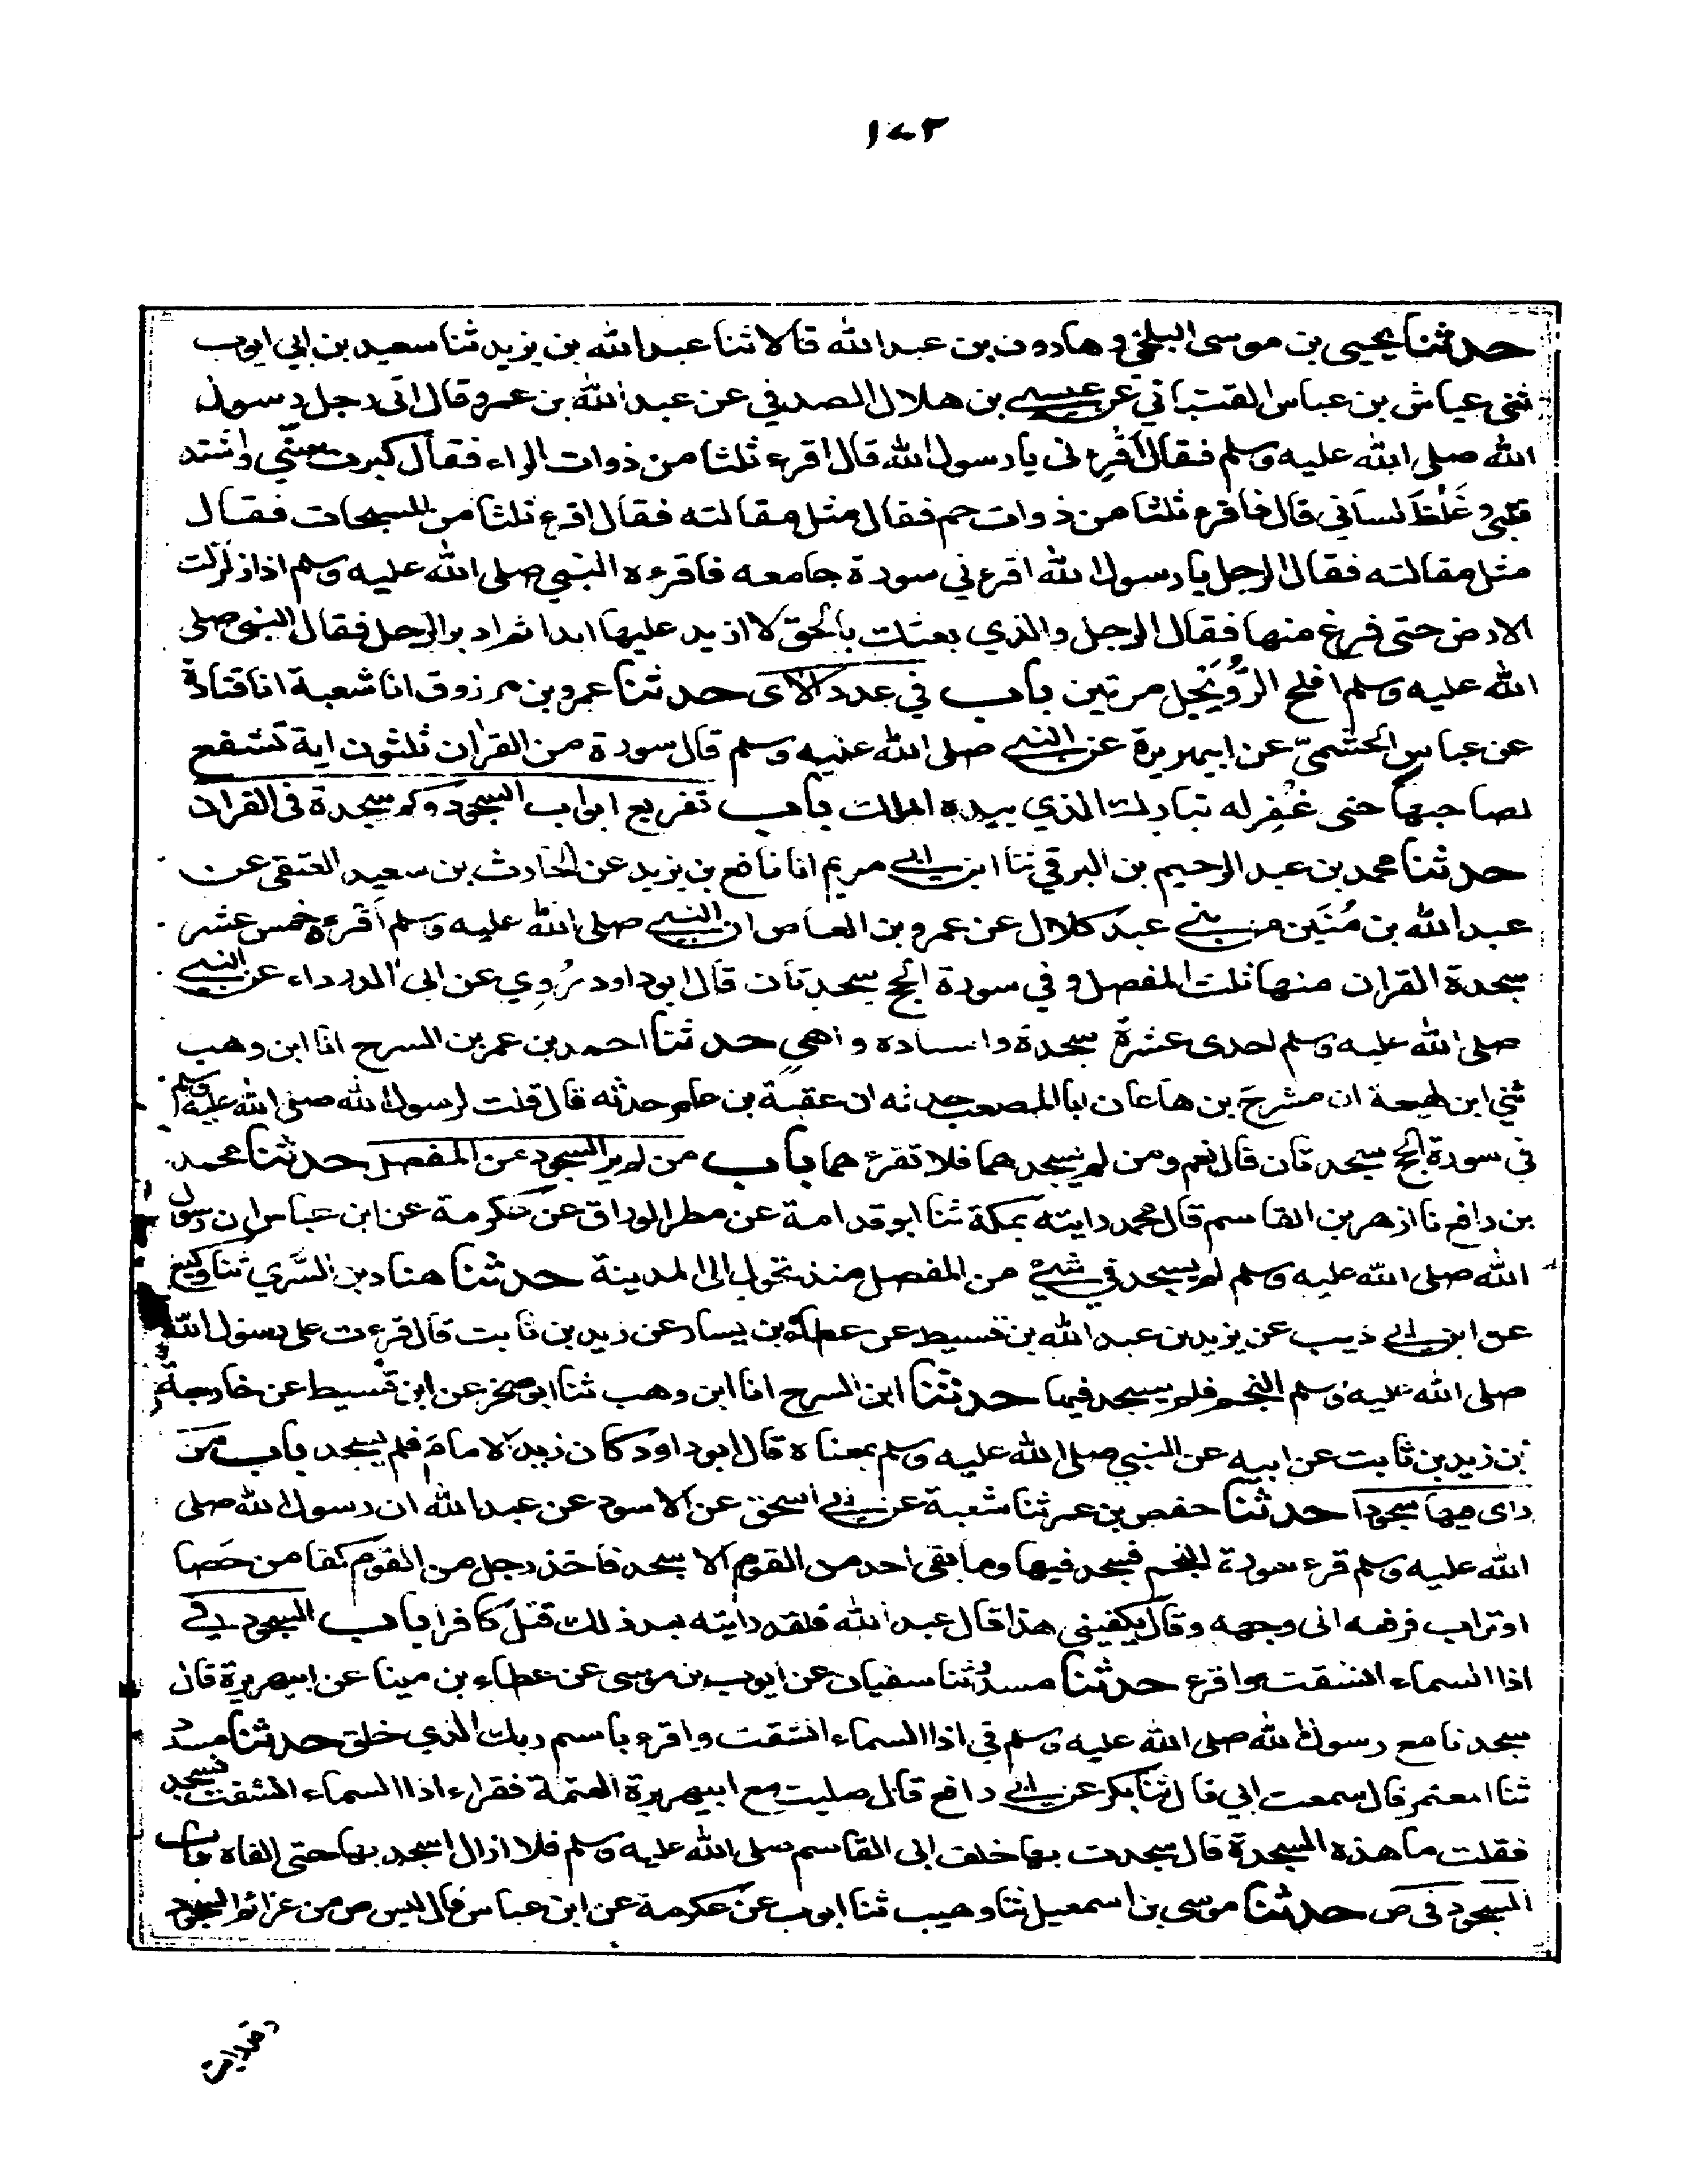 ١٧٢
حدثنا يحيى بن موسى البلخي وهارون بن عبد الله قالا ثنا عبد الله بن يزيد ثنا سعيد بن ابي ايوب
ثني عياش بن عباس القتباني عن عيسى بن هلال الصدفي عن عبد الله بن عمرو قال اتى رجل رسول
الله صلى الله عليه وسلم فقال اَقْرِء ني يا رسول الله قال اقرء ثلثا من ذوات الراء فقال كبرت سنّي واشتد
قلبي و غَلُظَ لساني قال فاقرء ثلثا من ذوات حم فقال مثل مقالته فقال اقرء ثلثا من المسبحات فقال
مثل مقالته فقال الرجل يا رسول الله اقرءني سورة جامعه فاقرءه النبي صلى الله عليه وسلم اذا زلزلت
الارض حتى فرغ منها فقال الرجل والذي بعثك بالحق لا ازيد عليها ابدا ثم ادبر الرجل فقال النبي صلى
الله عليه وسلم افلح الرُّوَيْجِل مرتين باب في عدد الآى حدثنا عمرو بن مرزوق انا شعبة انا قتادة
عن عباس الجشميّ عن ابيهريرة عن النبي صلى الله عليه وسلم قال سورة من القرآن ثلثون اية تشفع
لصاحبها حتى غُفِر له تبارك الذي بيده الملك باب تفريع ابواب السجود وكم سجدة في القران
حدثنا محمد بن عبد الرحيم بن البرقي ثنا ابن ابي مريم انا نافع بن يزيد عن الحارث بن سعيد العتقي عن
عبد الله بن مُنَين من بني عبد كلال عن عمرو بن العاص ان النبي صلى الله عليه وسلم اقرءه خمس عشر
سجدة القران منها ثلث المفصل و في سورة الحج سجدتان قال ابو داود رُوِي عن ابى الدرداء عن النبي
صلى الله عليه وسلم احدى عشرة سجدة واسناده واهي حدثنا احمد بن عمر بن السرح انا ابن وهب
ثني ابن لهيعة ان مشرح بن هاعان ابا المصعب حدثه ان عقبة بن عامر حدثه قال قلت لرسول الله صلى الله عليه وسلم
في سورة الحج سجدتان قال نعم ومن لم يسجدهما فلا تقرءهما باب من لم ير السجود عن المفصل حدثنا محمد
بن رافع نا ازهر بن القاسم قال محمد رايته بمكة ثنا ابو قدامة عن مطر الوراق عن عكرمة عن ابن عباس ان رسول
الله صلى الله عليه وسلم لم يسجد في شئ من المفصل منذ تحول الى المدينة حدثنا هناد بن السَّري ثنا وكيع
عن ابن ابي ذيب عن يزيد بن عبد الله بن قسيط عن عطاء بن يسار عن زيد بن ثابت قال قرءت على رسول الله
صلى الله عليه وسلم النجم فلم يسجد فيها حدثنا ابن السرح انا ابن وهب ثنا ابو صخر عن ابن قسيط عن خارجة
بن زيد بن ثابت عن ابيه عن النبي صلى الله عليه وسلم بمعناه قال ابو داود كان زيد الامام فلم يسجد باب من
راى فيها سجودا حدثنا حفص بن عمر ثنا شعبة عن ابي اسحق عن الاسود عن عبد الله ان رسول الله صلى
الله عليه وسلم قرء سورة النجم فسجد فيها وما بقي احد من القوم الا سجد فاخذ رجل من القوم كفا من حَصا
او تراب فرفعه الى وجهه وقال يكفيني هذا قال عبد الله فلقد رايته بعد ذلك قتل كافرا باب السجود في
اذا السماء انشقت واقرء حدثنا مسدد ثنا سفيان عن ايوب بن موسى عن عطاء بن مينا عن ابيهريرة قال
سجدنا مع رسول الله صلى الله عليه وسلم في اذا السماء انشقت واقرء باسم ربك الذي خلق حدثنا مسدد
ثنا المعتمر قال سمعت ابي قال ثنا بكر عن ابي رافع قال صليت مع ابيهريرة العتمة فقراء اذا السماء انشقت فسجد
فقلت ما هذه السجدة قال سجدت بها خلف ابي القاسم صلى الله عليه وسلم فلا ازال اسجد بها حتى القاه باب
السجود في ص حدثنا موسى بن اسمعيل ثنا وهيب ثنا ايوب عن عكرمة عن ابن عباس قال ليس ص من عزائم السجود